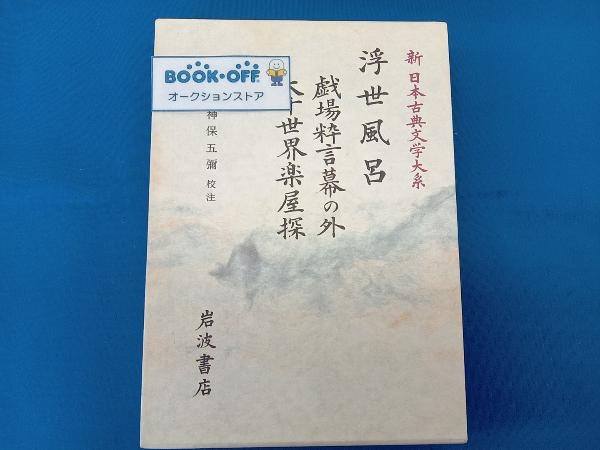 BOOK・OFF
オークションストア
新 日本古典文学大系
浮世風呂
戯場粋言幕の外
大千世界楽屋探
神保五彌 校注
岩波書店